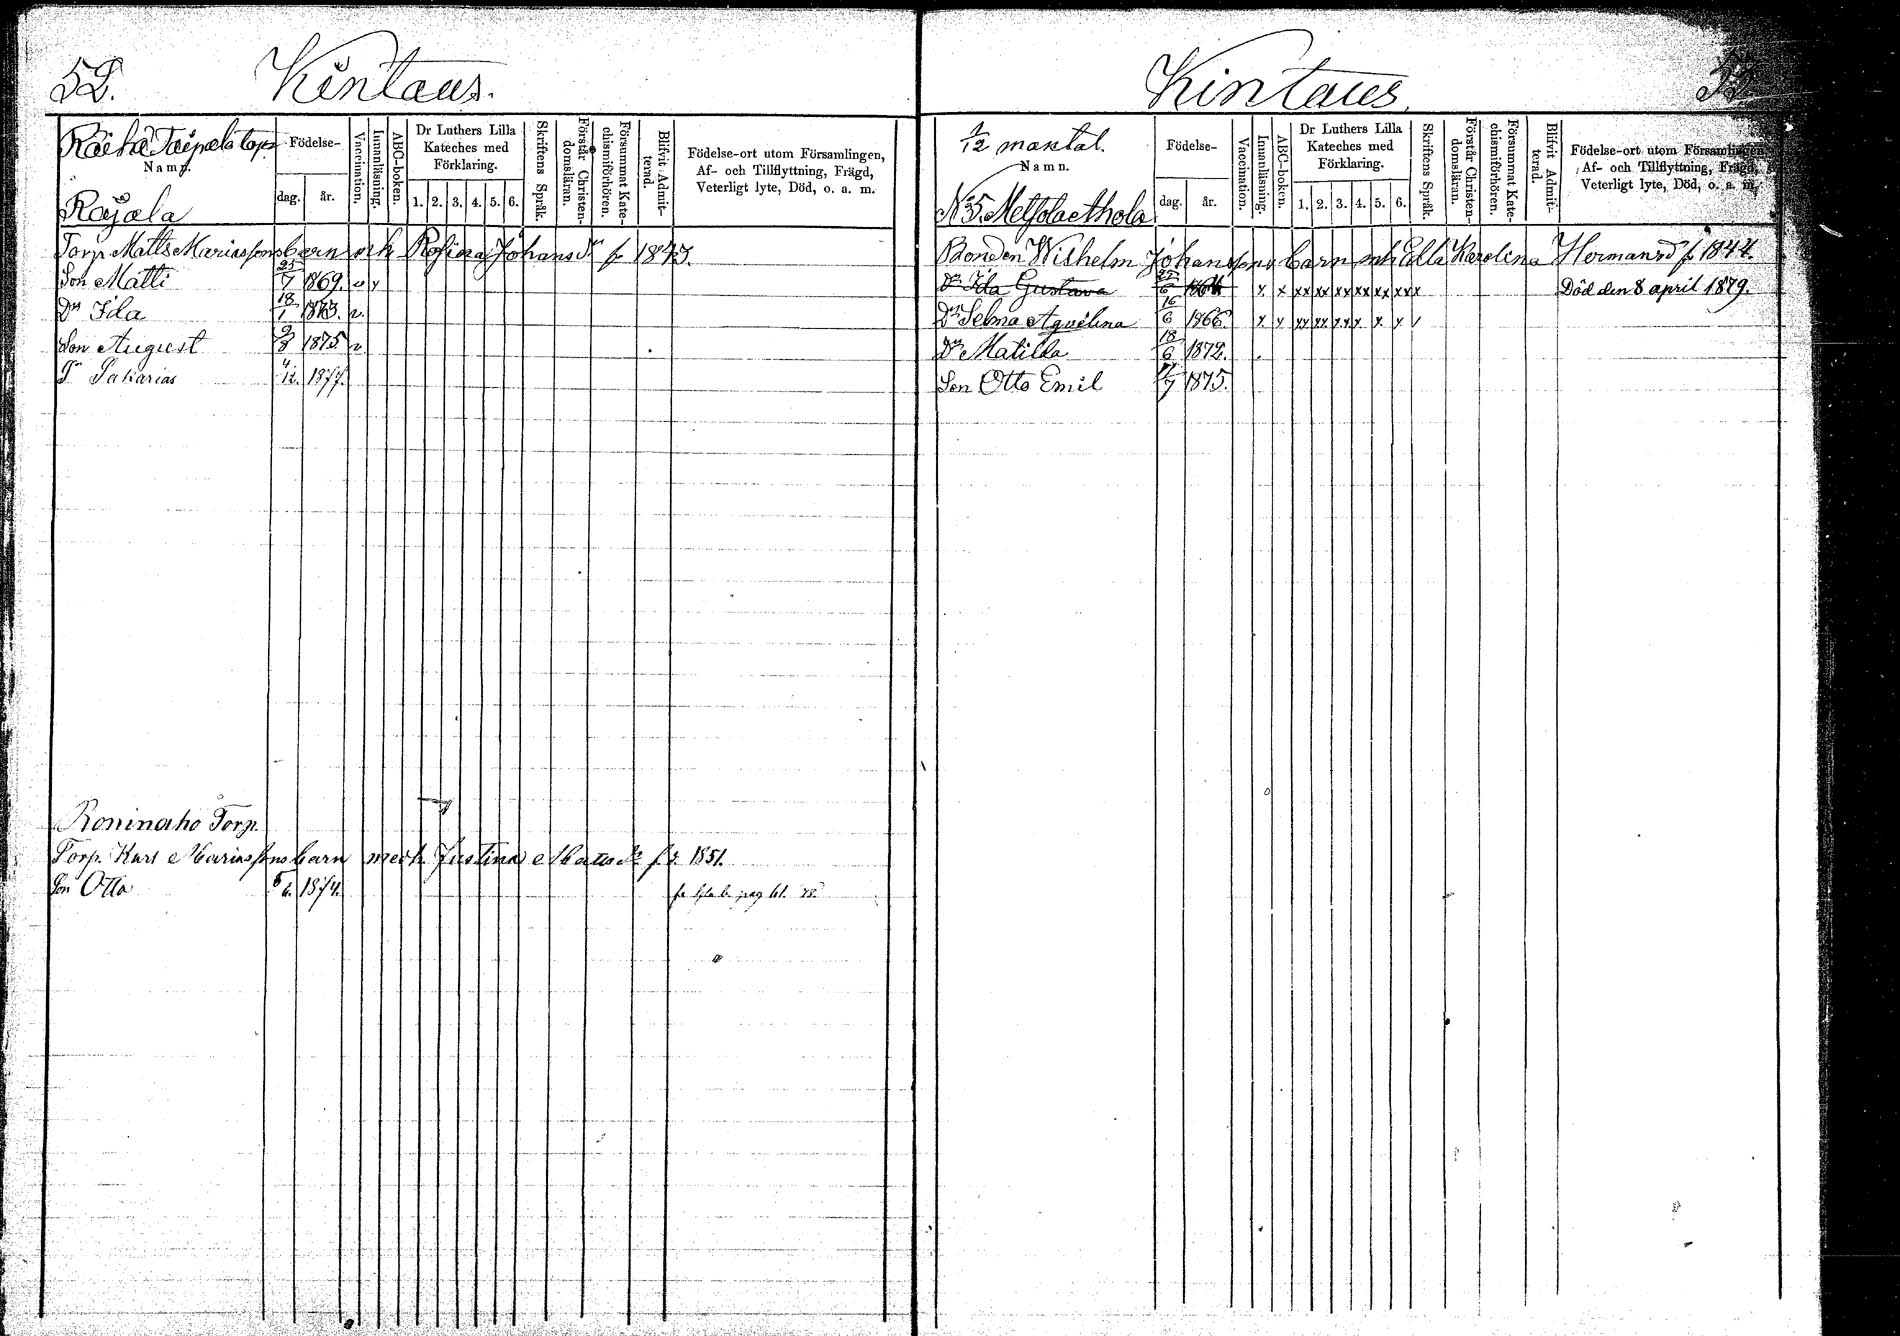 52.
Kintaus.
Räihä Taipale torp
Namn.
Födelse-
dag.
år.
Vaccination.
Innanläsning.
ABC-boken.
Dr Luthers Lilla Kateches med Förklaring.
1. 2. 3. 4. 5. 6.
Skriftens Språk.
Förstår Christen-domsläran.
Försummat Kate-chismiförhören.
Blifvit Admit-terad.
Födelse-ort utom Församlingen,
Af- och Tillflyttning, Frägd,
Veterligt lyte, Död, o. a. m.
Rajala
Torp. Matts Mariassons barn och Rosina Johansdr f 1843.
Son Matti 25/7 1869. v y
Dr Ida 18/1 1873. v.
Son August 9/8 1875 v
Dn Sakarias 4/12. 1877.
Roninaho Torp.
Torp. Karl Mariassons barn med h. Justina Mattsdr f. 1851.
Son Otto 5/6. 1874.
Kintaus.
53.
1/12 mantal.
Namn.
Födelse-
dag.
år.
Vaccination.
Innanläsning.
ABC-boken.
Dr Luthers Lilla Kateches med Förklaring.
1. 2. 3. 4. 5. 6.
Skriftens Språk.
Förstår Christen-domsläran.
Försummat Kate-chismiförhören.
Blifvit Admit-terad.
Födelse-ort utom Församlingen,
Af- och Tillflyttning, Frägd,
Veterligt lyte, Död, o. a. m.
No 5. Metsolaethola
Bonden Wilhelm Johanssons barn m h Ella Karolina Hermansd f. 1844.
Dr Ida Gustava 22/6 1864 x x xx xx xx xx xx xxx Död den 8 april 1879.
Dr Selma Aqvilina 16/6 1866. x y xx xx xx x x y y
Dr Matilda 18/6 1872.
Son Otto Emil 17/7 1875.